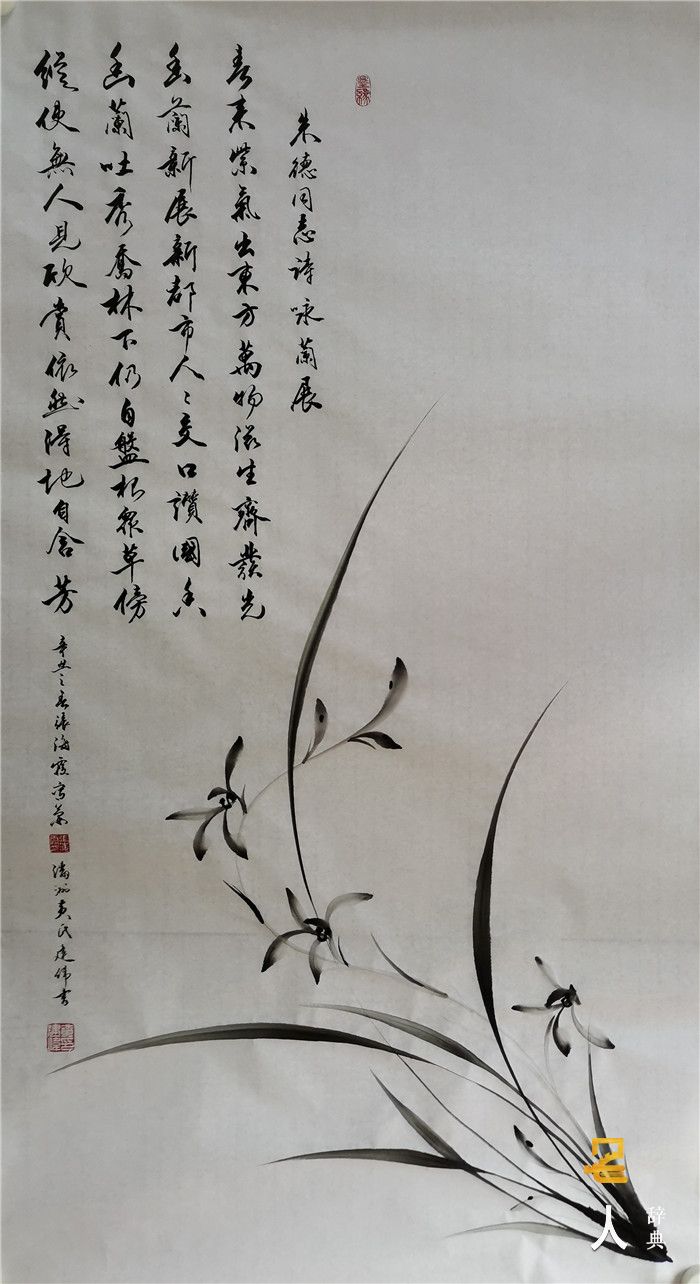 朱德同志詩咏蘭展
春來紫氣出東方萬物滋生齊發光
幽蘭新展新都市人〻交口讚國香
幽蘭吐秀喬林下仍自盤根衆草傍
縱使無人見欣賞依然得地自含芳
辛丑之春張海霞寫蘭
黄氏建偉書
名人
辞典